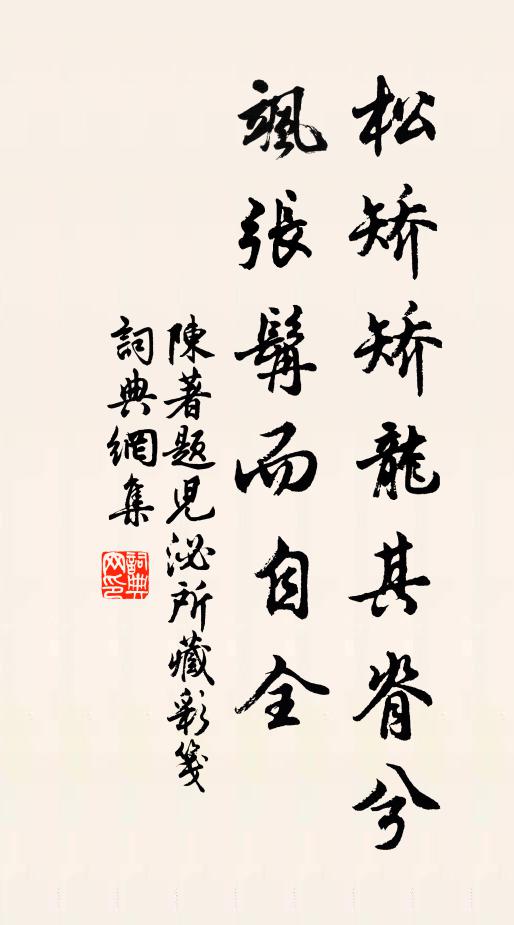 松矯矯龍其脊兮
颯張髯而自全
陳著題兒泌所藏彩箋
詞典網集
詞典